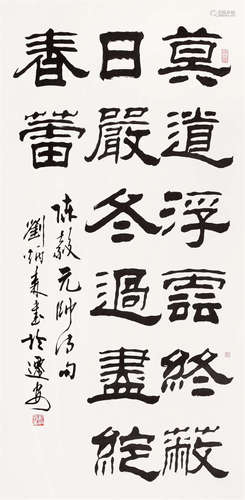 莫道浮雲終蔽
日嚴冬過盡綻
春蕾
陈毅元帅詩句
劉炳森書於遷安